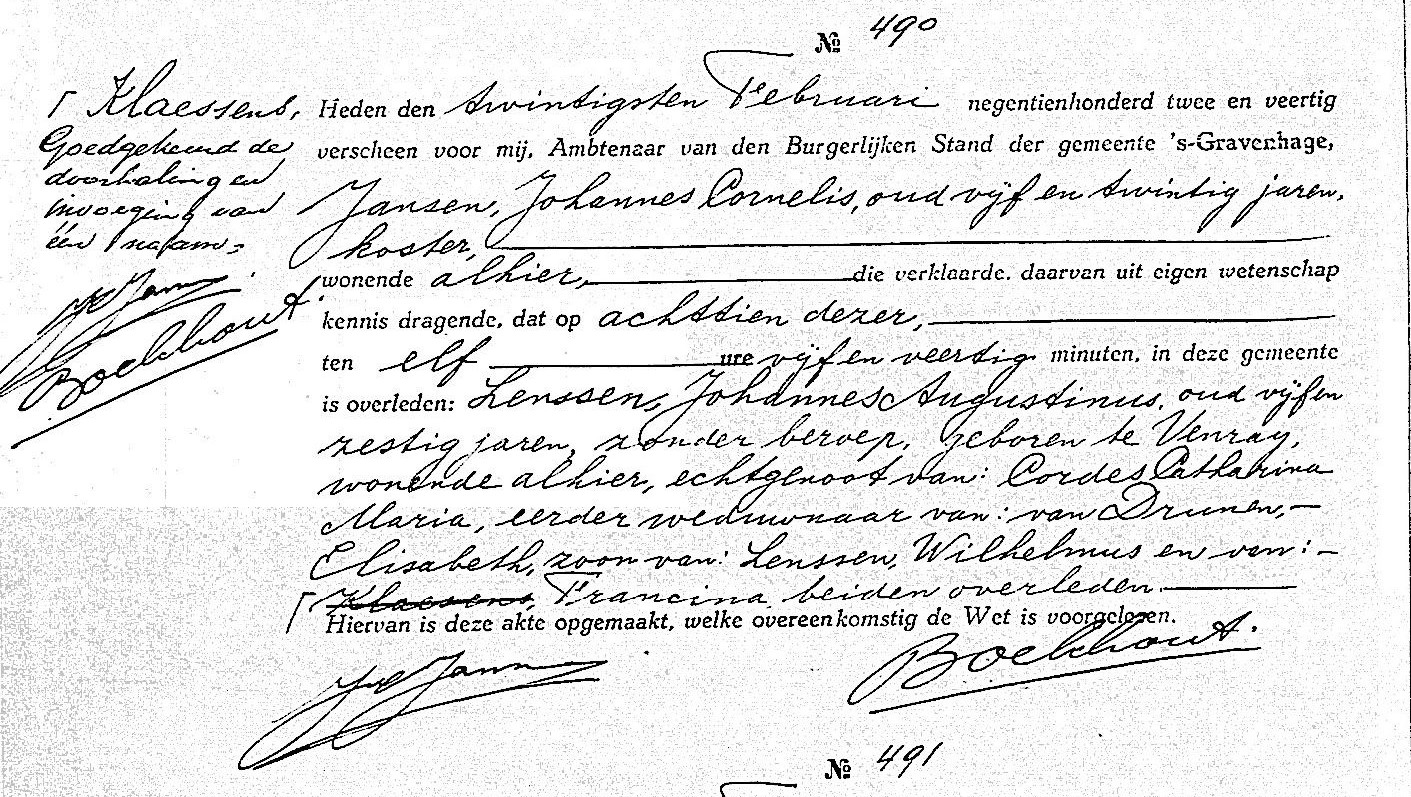 № 490
Klaessens,
Goedgekeurd de
doorhaling en
invoeging van
één naam.
JC Jansen
Boekhout
Heden den twintigsten Februari negentienhonderd twee en veertig
verscheen voor mij, Ambtenaar van den Burgerlijken Stand der gemeente 's-Gravenhage,
Jansen, Johannes Cornelis, oud vijf en twintig jaren,
koster,
wonende alhier, die verklaarde, daarvan uit eigen wetenschap
kennis dragende, dat op achttien dezer,
ten elf ure vijf en veertig minuten, in deze gemeente
is overleden: Lenssen, Johannes Augustinus, oud vijf en
zestig jaren, zonder beroep, geboren te Venray,
wonende alhier, echtgenoot van: Cordes, Catharina
Maria, eerder weduwnaar van: van Drunen,
Elisabeth, zoon van: Lenssen, Wilhelmus en van:
Klaesens, Francina, beiden overleden.
Hiervan is deze akte opgemaakt, welke overeenkomstig de Wet is voorgelezen.
JC Jansen
Boekhout.
№ 491